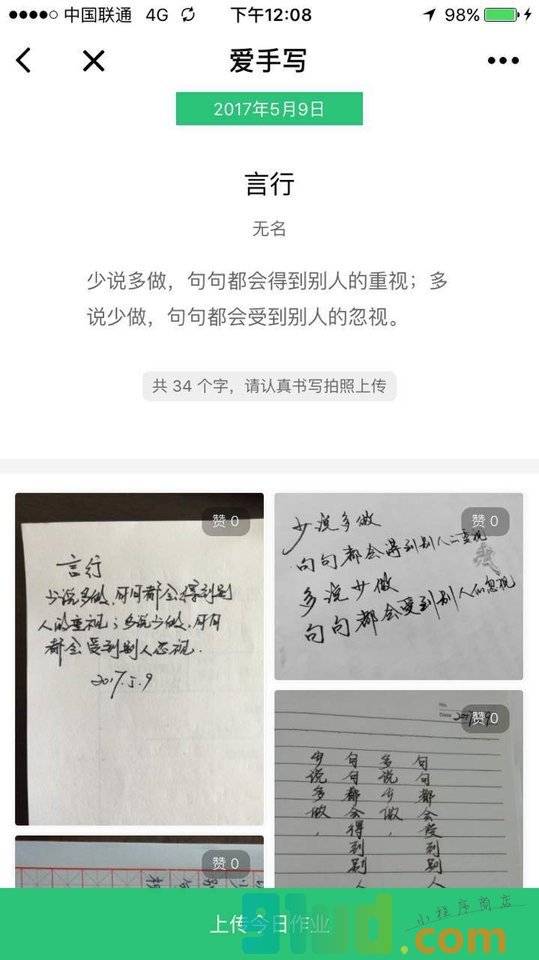 中国联通 4G 下午12:08 98%
爱手写
2017年5月9日
言行
无名
少说多做，句句都会得到别人的重视；多
说少做，句句都会受到别人的忽视。
共 34 个字，请认真书写拍照上传
赞 0
言行
少说多做，句句都会得到别
人的重视；多说少做，句句
都会受到别人忽视．
2017.5.9
赞 0
少说多做
句句都会得到别人的重视
多说少做
句句都会受到别人的忽视
赞 0
No.
Date 2017.5.9
少说多做，
句句都会得到别人
多说少做，
句句都会受到别人
赞 0
上传今日作业
小程序商店
91ud.com